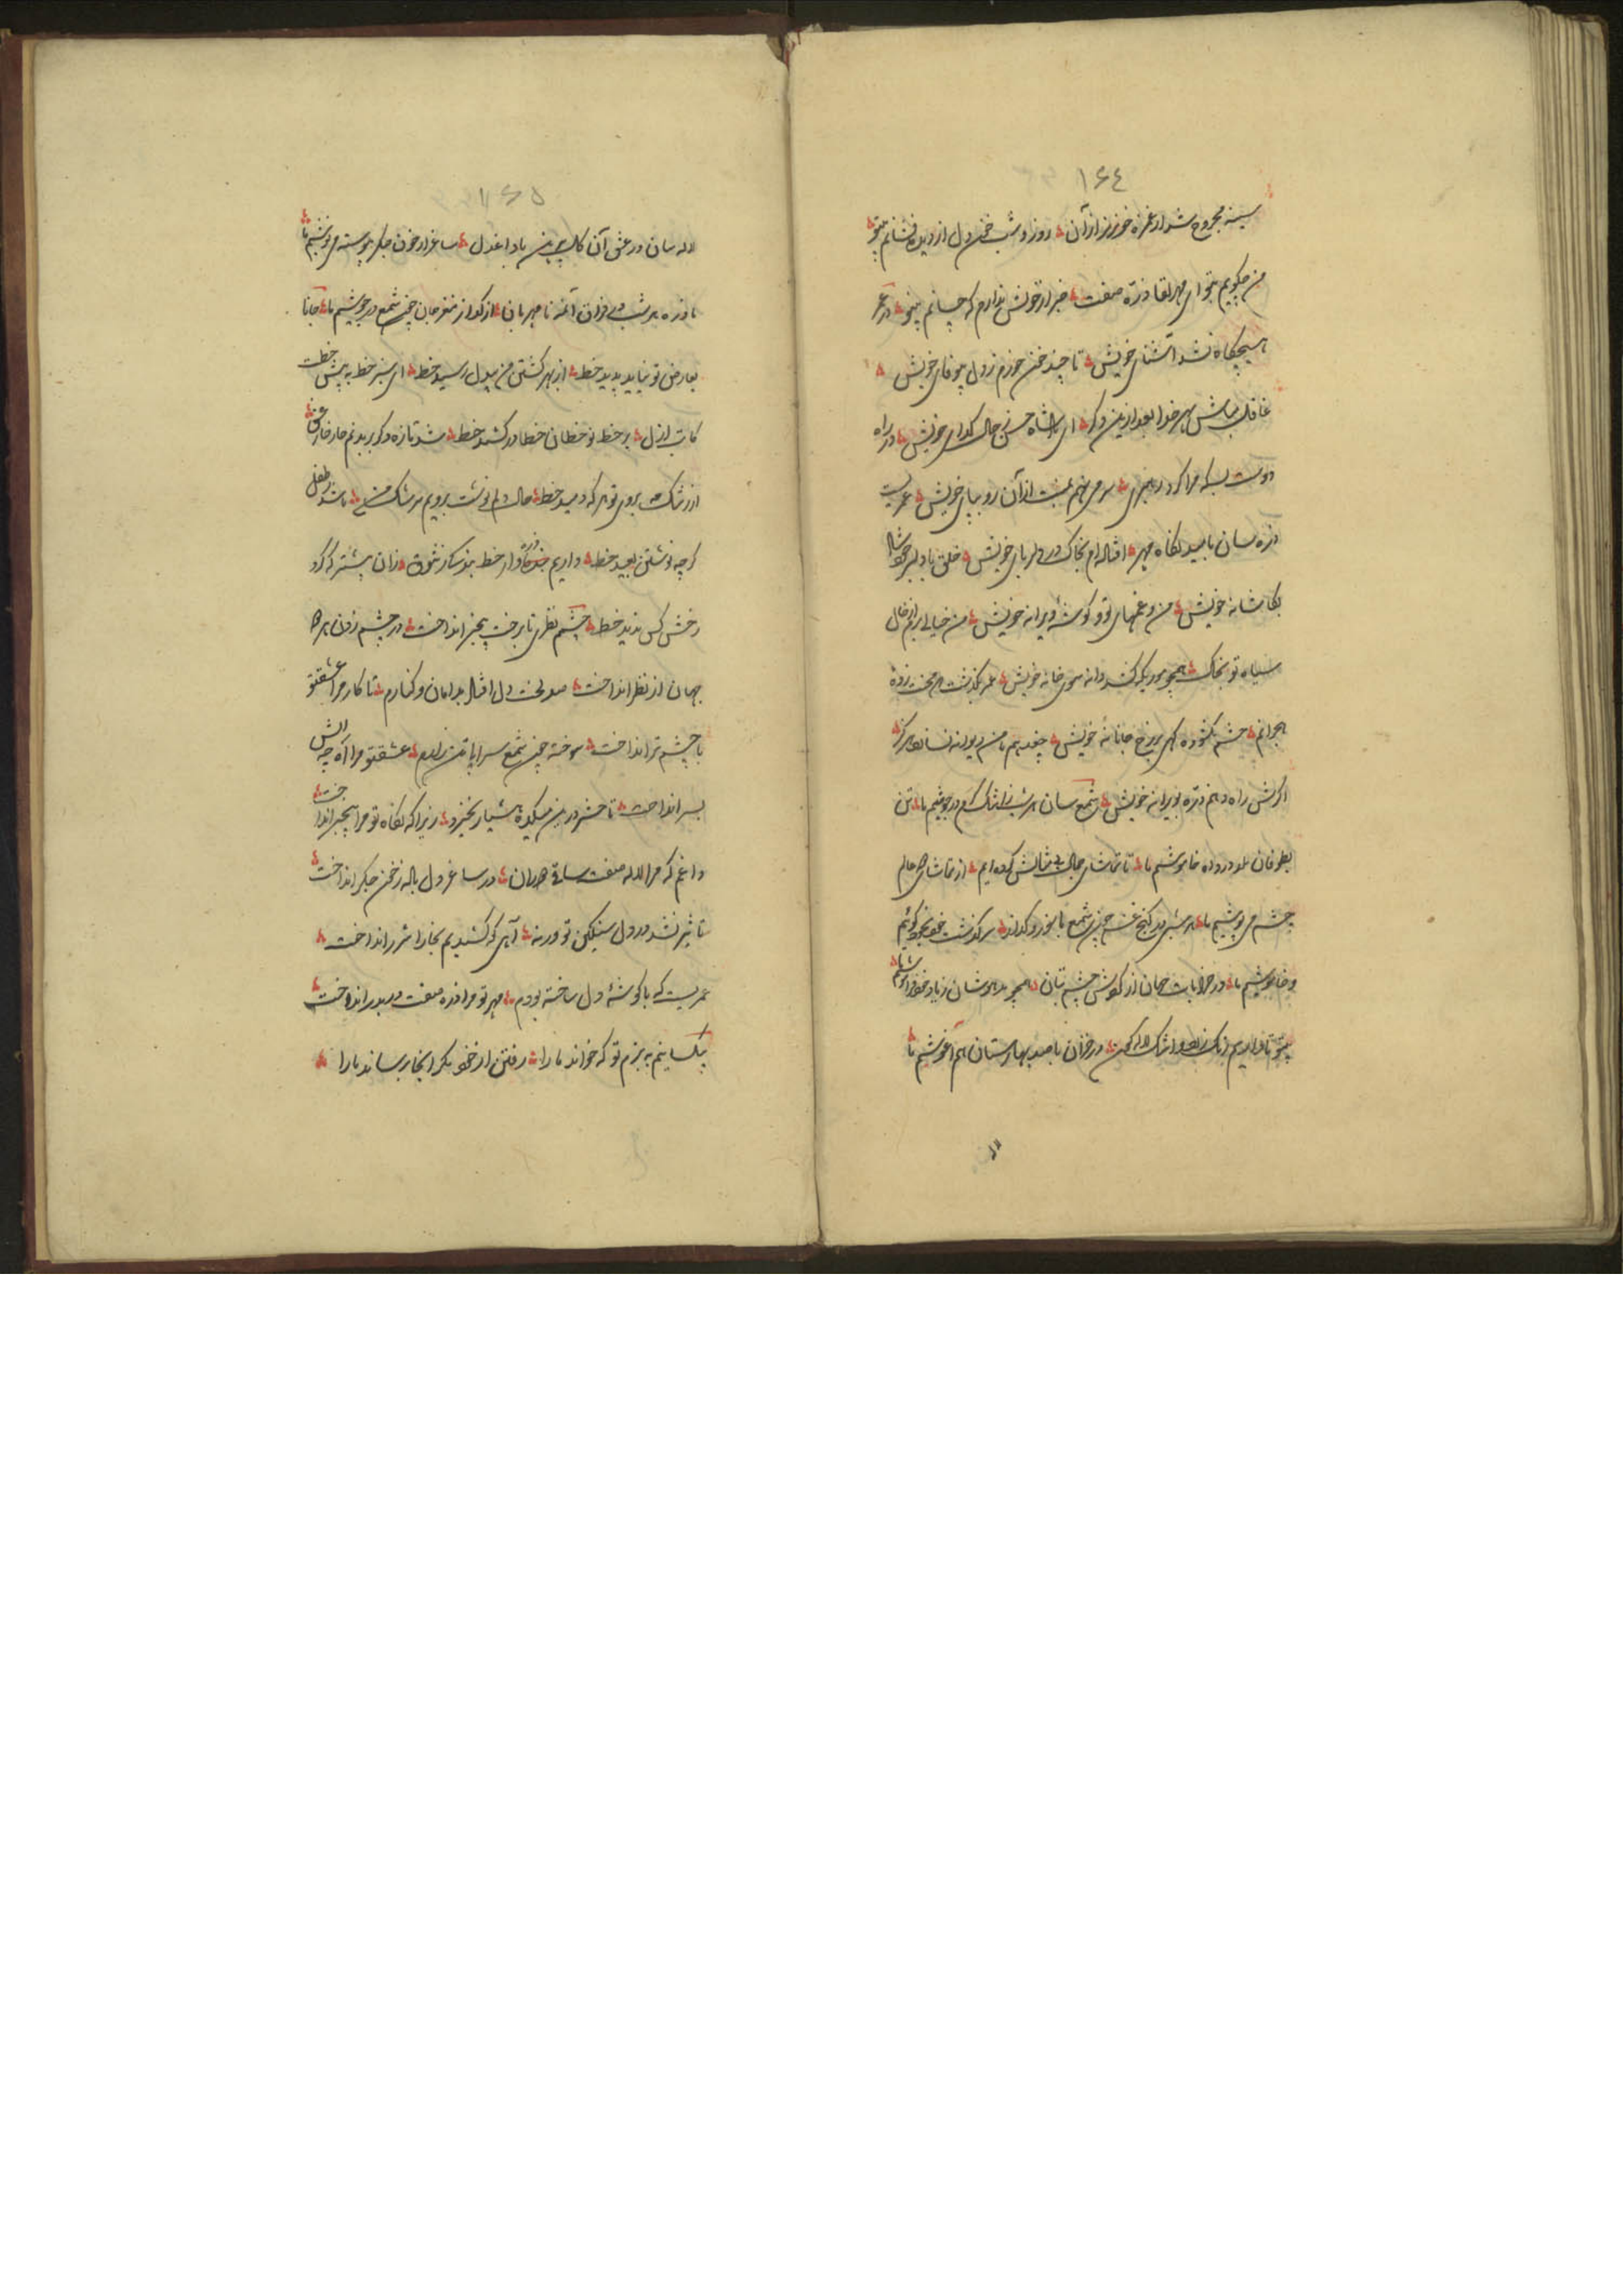 ۱۶۴
سینه مجروح شد از غمزه خونریز از آن روز و شب خون دل از دیده فشانم بیتو
من چگویم بتو ای مهرلقا ذره صفت خبر از خویش ندارم که چسانم بیتو در
هیچگاه نشد آشنای خویش تا چند خون خورم ز دل بیوفای خویش
غافل مباش بهر خدا بعد ازین دگر ای پادشاه حسن ز حال گدای خویش در راه
دوست بسکه مرا کرد رهبری سر می نهم بمنت از آن رو بپای خویش عمریست
ذره سان بامید نگاه مهر افتاده ام بخاک در دلربای خویش خلق با دلبر خود
بکاشانه خویش من و غمهای تو و گوشه ویرانه خویش من خیالی برم از خال
سیاه تو بخاک همچو موریکه کشد دانه سوی خانه خویش محنت زده
هجرانم چشم نگشوده گهی بر رخ جانانه خویش چغد هم با من دیوانه نسازد هرگز
گرش راه دهم ذره بویرانه خویش شمع سان هر شب ز اشک گرم در جوشیم ما تن
بطوفان داده خاموشیم ما تا تماشای جمال بی مثالش کرده ایم از تماشای عالم
چشم می پوشیم ما هر شبی در کنج غم چون شمع با سوز و گداز سرگذشت خود بخود گوئیم
و خاموشیم ما در خرابات جهان از گردش چشم بتان همچو مدهوشان ز یاد خود فراموشیم ما
بیتو تا داریم رنگ زرد و اشک لاله گون در خزان با صد بهارستان هم آغوشیم ما
۱۶۵
لاله سان در عشق آن گل پیرهن با داغ دل ساغر از خون جگر پیوسته می نوشیم ما
ذره هر شب در فراق آن مه نامهربان از گداز مغز جان چون شمع در جوشیم ما جانا
بعارض تو نیاید پدید خط از بهر کشتن من بیدل رسید خط ای سبز خط به پیش خطت
کاتب ازل بر خط نوخطان خطا در کشید خط شد تازه دگر بدنم خار خار عشق
از رشک بروی تو هر که دمید خط حال دلم نوشت برویم سرشک من باشد ز طفل
گرچه نوشتن بعید خط داریم چند روز خط بندگیش شوق زان پیشتر که گرد
رخش کس ندید خط چشم نظری تا برخت بیخبر انداخت در چشم زدن هر دو
جهان از نظر انداخت صد لخت دل افتاد بدامان و کنارم تا کار مرا عشق تو
با چشم تر انداخت سوخته چون شمع سراپا تن زارم عشق تو مرا آه چه آتش
بسر انداخت تا حشر درین میکده هشیار نخیزد زیرا که نگاه تو مرا بیخبر انداخت
داغم که مرا لاله صفت ساقی دوران در ساغر دل باده ز خون جگر انداخت
تاثیر نشد در دل سنگین تو ورنه آهی که کشیدیم بخارا شرر انداخت
عمریست که با گوشه دل ساخته بودم مهر تو مرا ذره صفت در بدر انداخت
بیکسانیم به بزم تو که خواند ما را رفتن از خود مگر اینجا برساند ما را